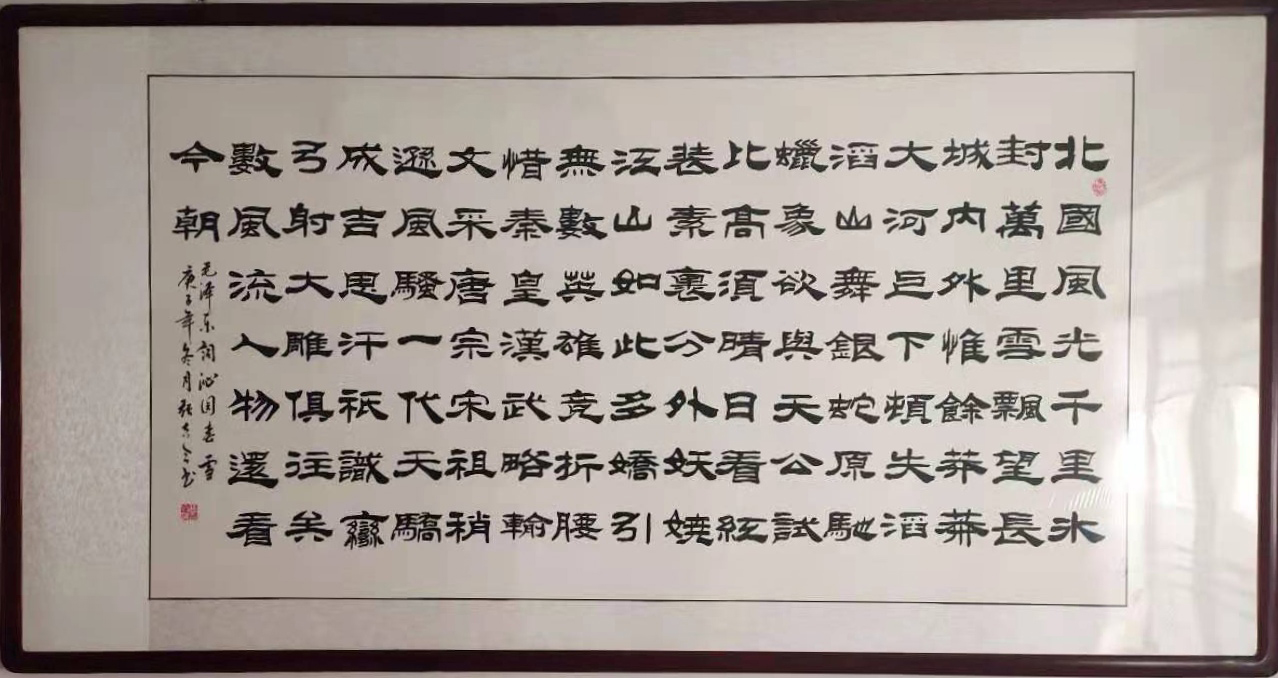 北國風光千里氷
封萬里雪飄望長
城内外惟餘莽莽
大河巨下頓失滔
滔山舞銀蛇原馳
蠟象欲與天公試
比高須晴日看紅
裝素裹分外妖嬈
江山如此多嬌引
無數英雄竞折腰
惜秦皇漢武略輸
文采唐宗宋祖稍
遜風騷一代天驕
成吉思汗祇識彎
弓射大雕俱往矣
數風流人物還看
今朝
毛泽东词沁园春雪
庚子年冬月张书